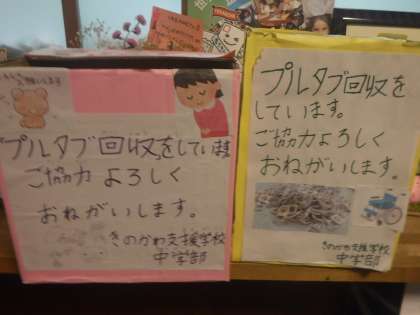 プルタブ回収をしています
ご協力 よろしく
おねがいします。
きのかわ支援学校
中学部
プルタブ回収を
しています。
ご協力よろしく
おねがいします。
きのかわ支援学校
中学部